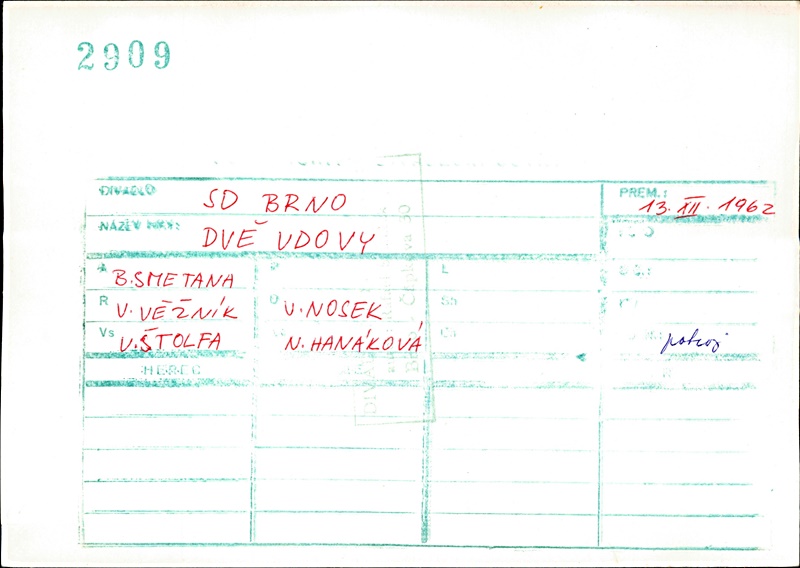 2909
DIVADLO SD BRNO PREM.: 13. XII. 1962
NÁZEV HRY: DVĚ VDOVY
A B. SMETANA P L
R V. VĚŽNÍK O V. NOSEK Sb
Vs V. ŠTOLFA N. HANÁKOVÁ
HEREC